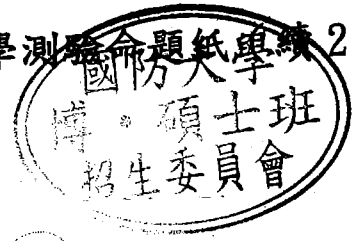 學測驗命題紙學續2
國防大學
博•碩士班
招生委員會